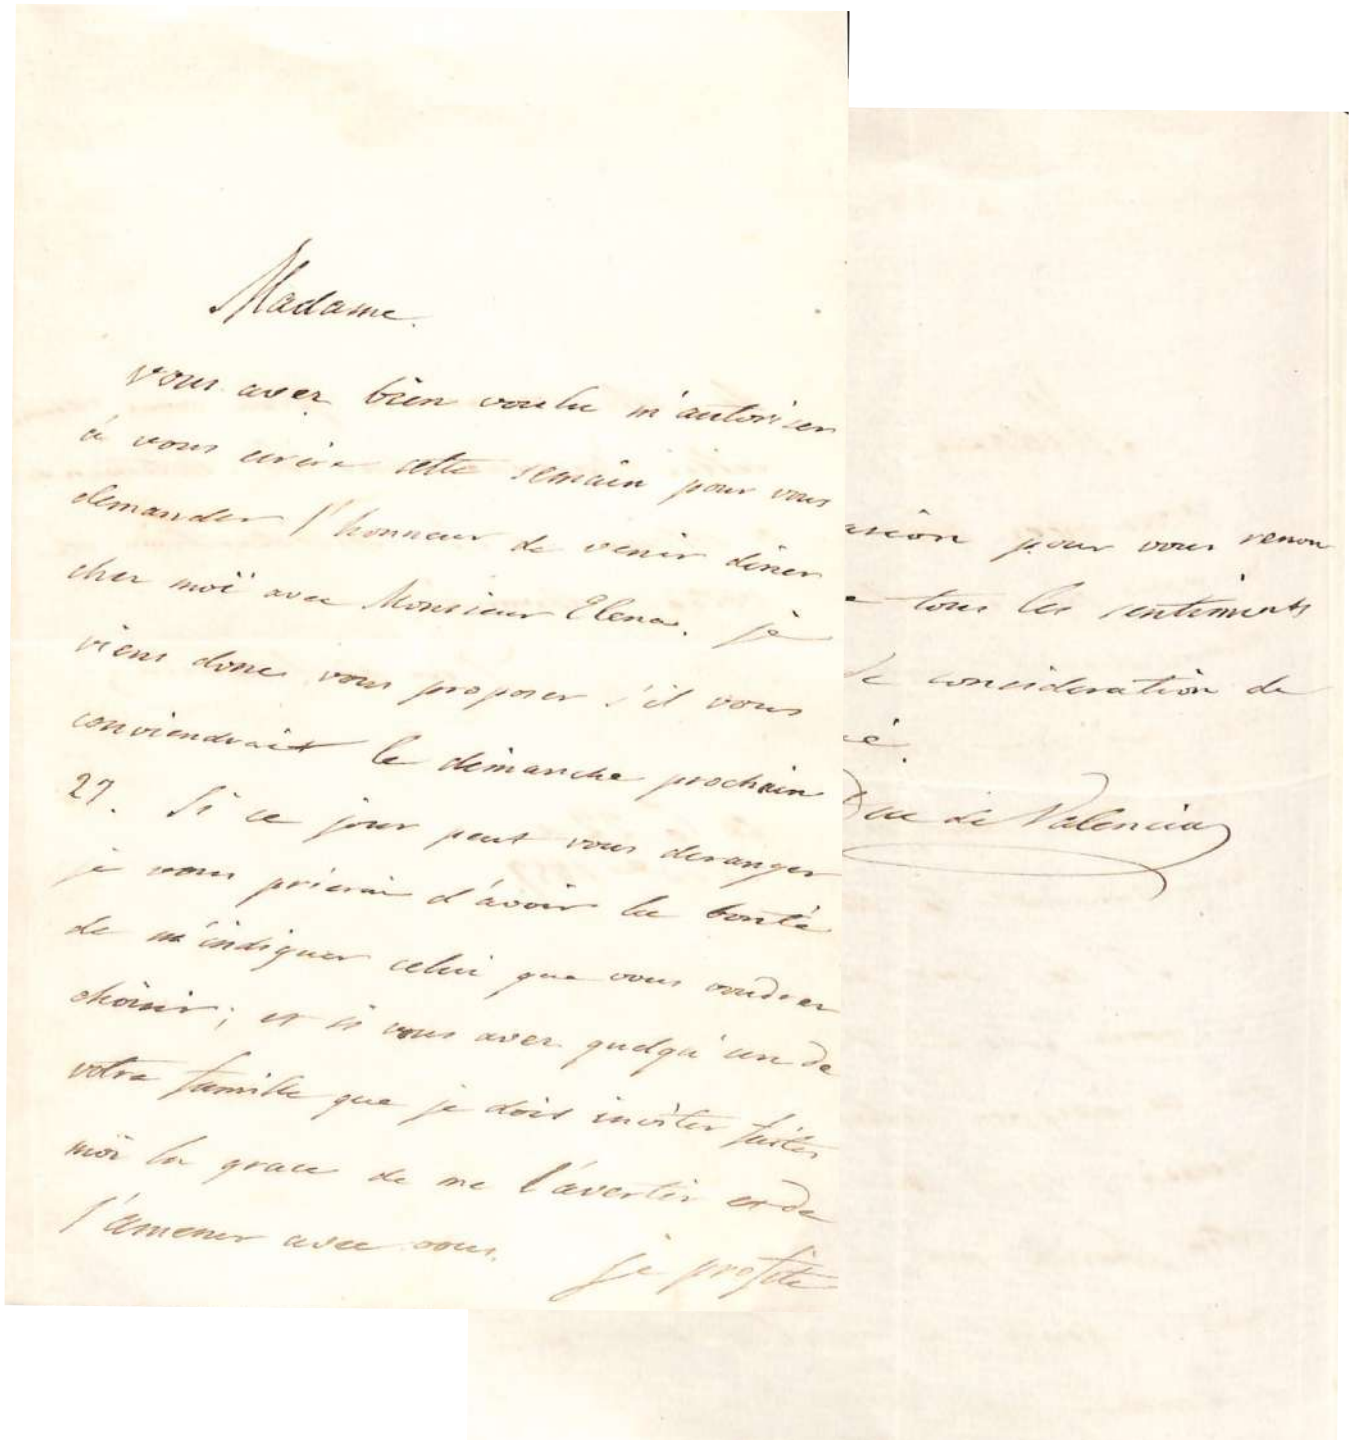 Madame.
vous avez bien voulu m'autoriser
à vous ecrire cette semain pour vous
demander l'honneur de venir diner
chez moi avec Monsieur Elena. je
viens donc vous proposer s'il vous
conviendrait le dimanche prochain
27. Si ce jour peut vous deranger
je vous prierai d'avoir la bonté
de m'indiquer celui que vous voudrez
choisir; et si vous avez quelqu'un de
votre famille que je dois inviter faites
moi la grace de me l'avertir et de
l'amener avec vous. je profite
asion pour vous renou
e tous les sentiments
de consideration de
é.
Duc de Valencia